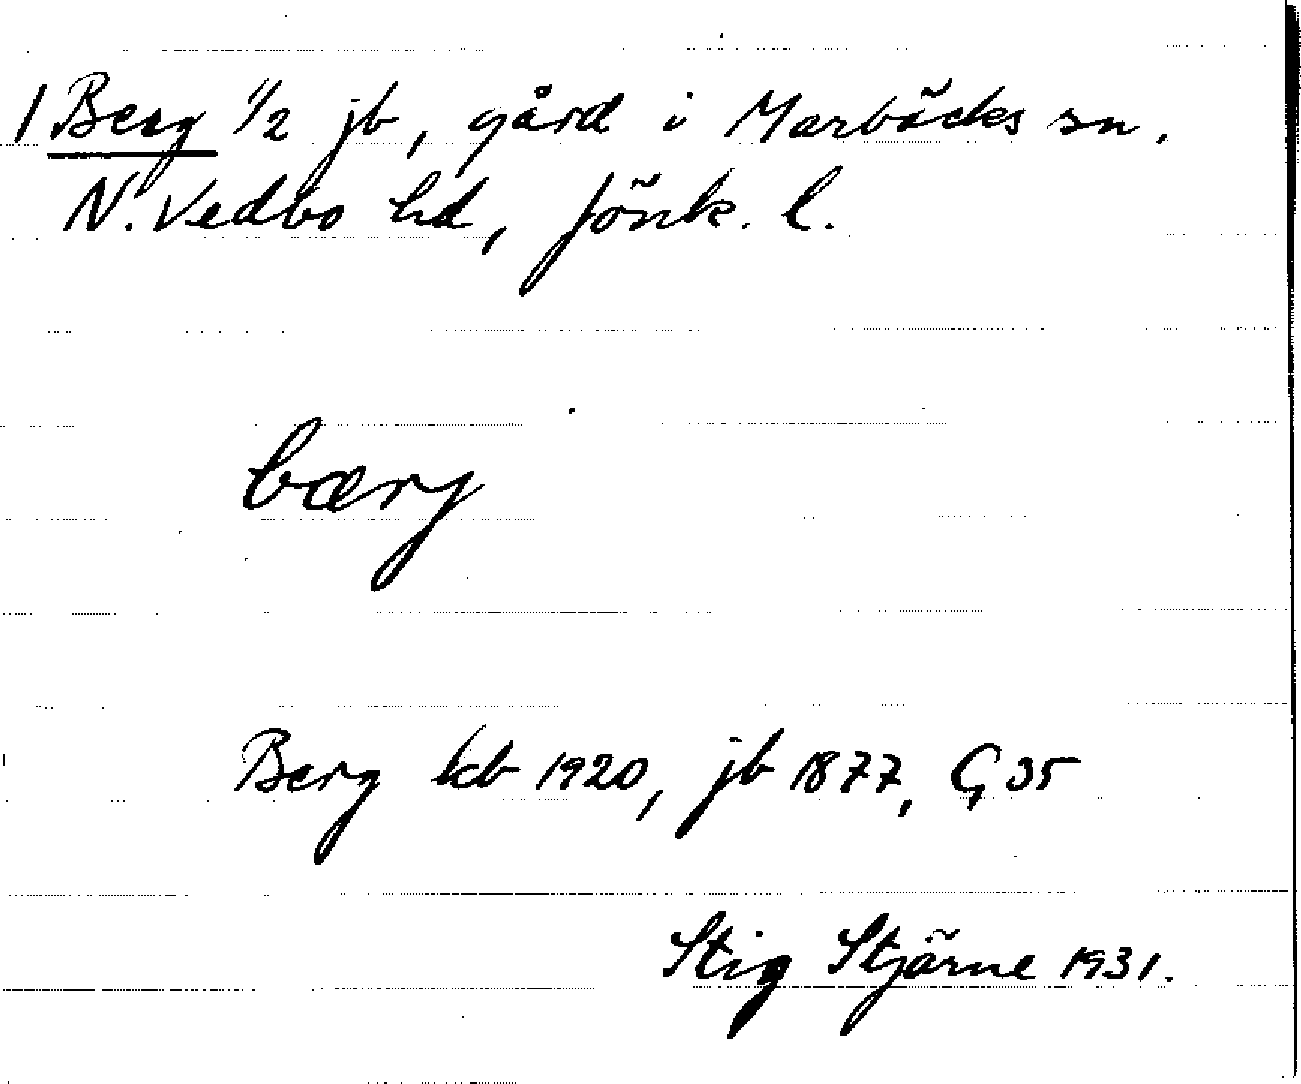 1 Berg 1/2 jb, gård i Marbäcks sn,
N. Vedbo hd, Jönk. l.
bærj
Berg kb 1920, jb 1877, G 35
Stig Stjärne 1931.